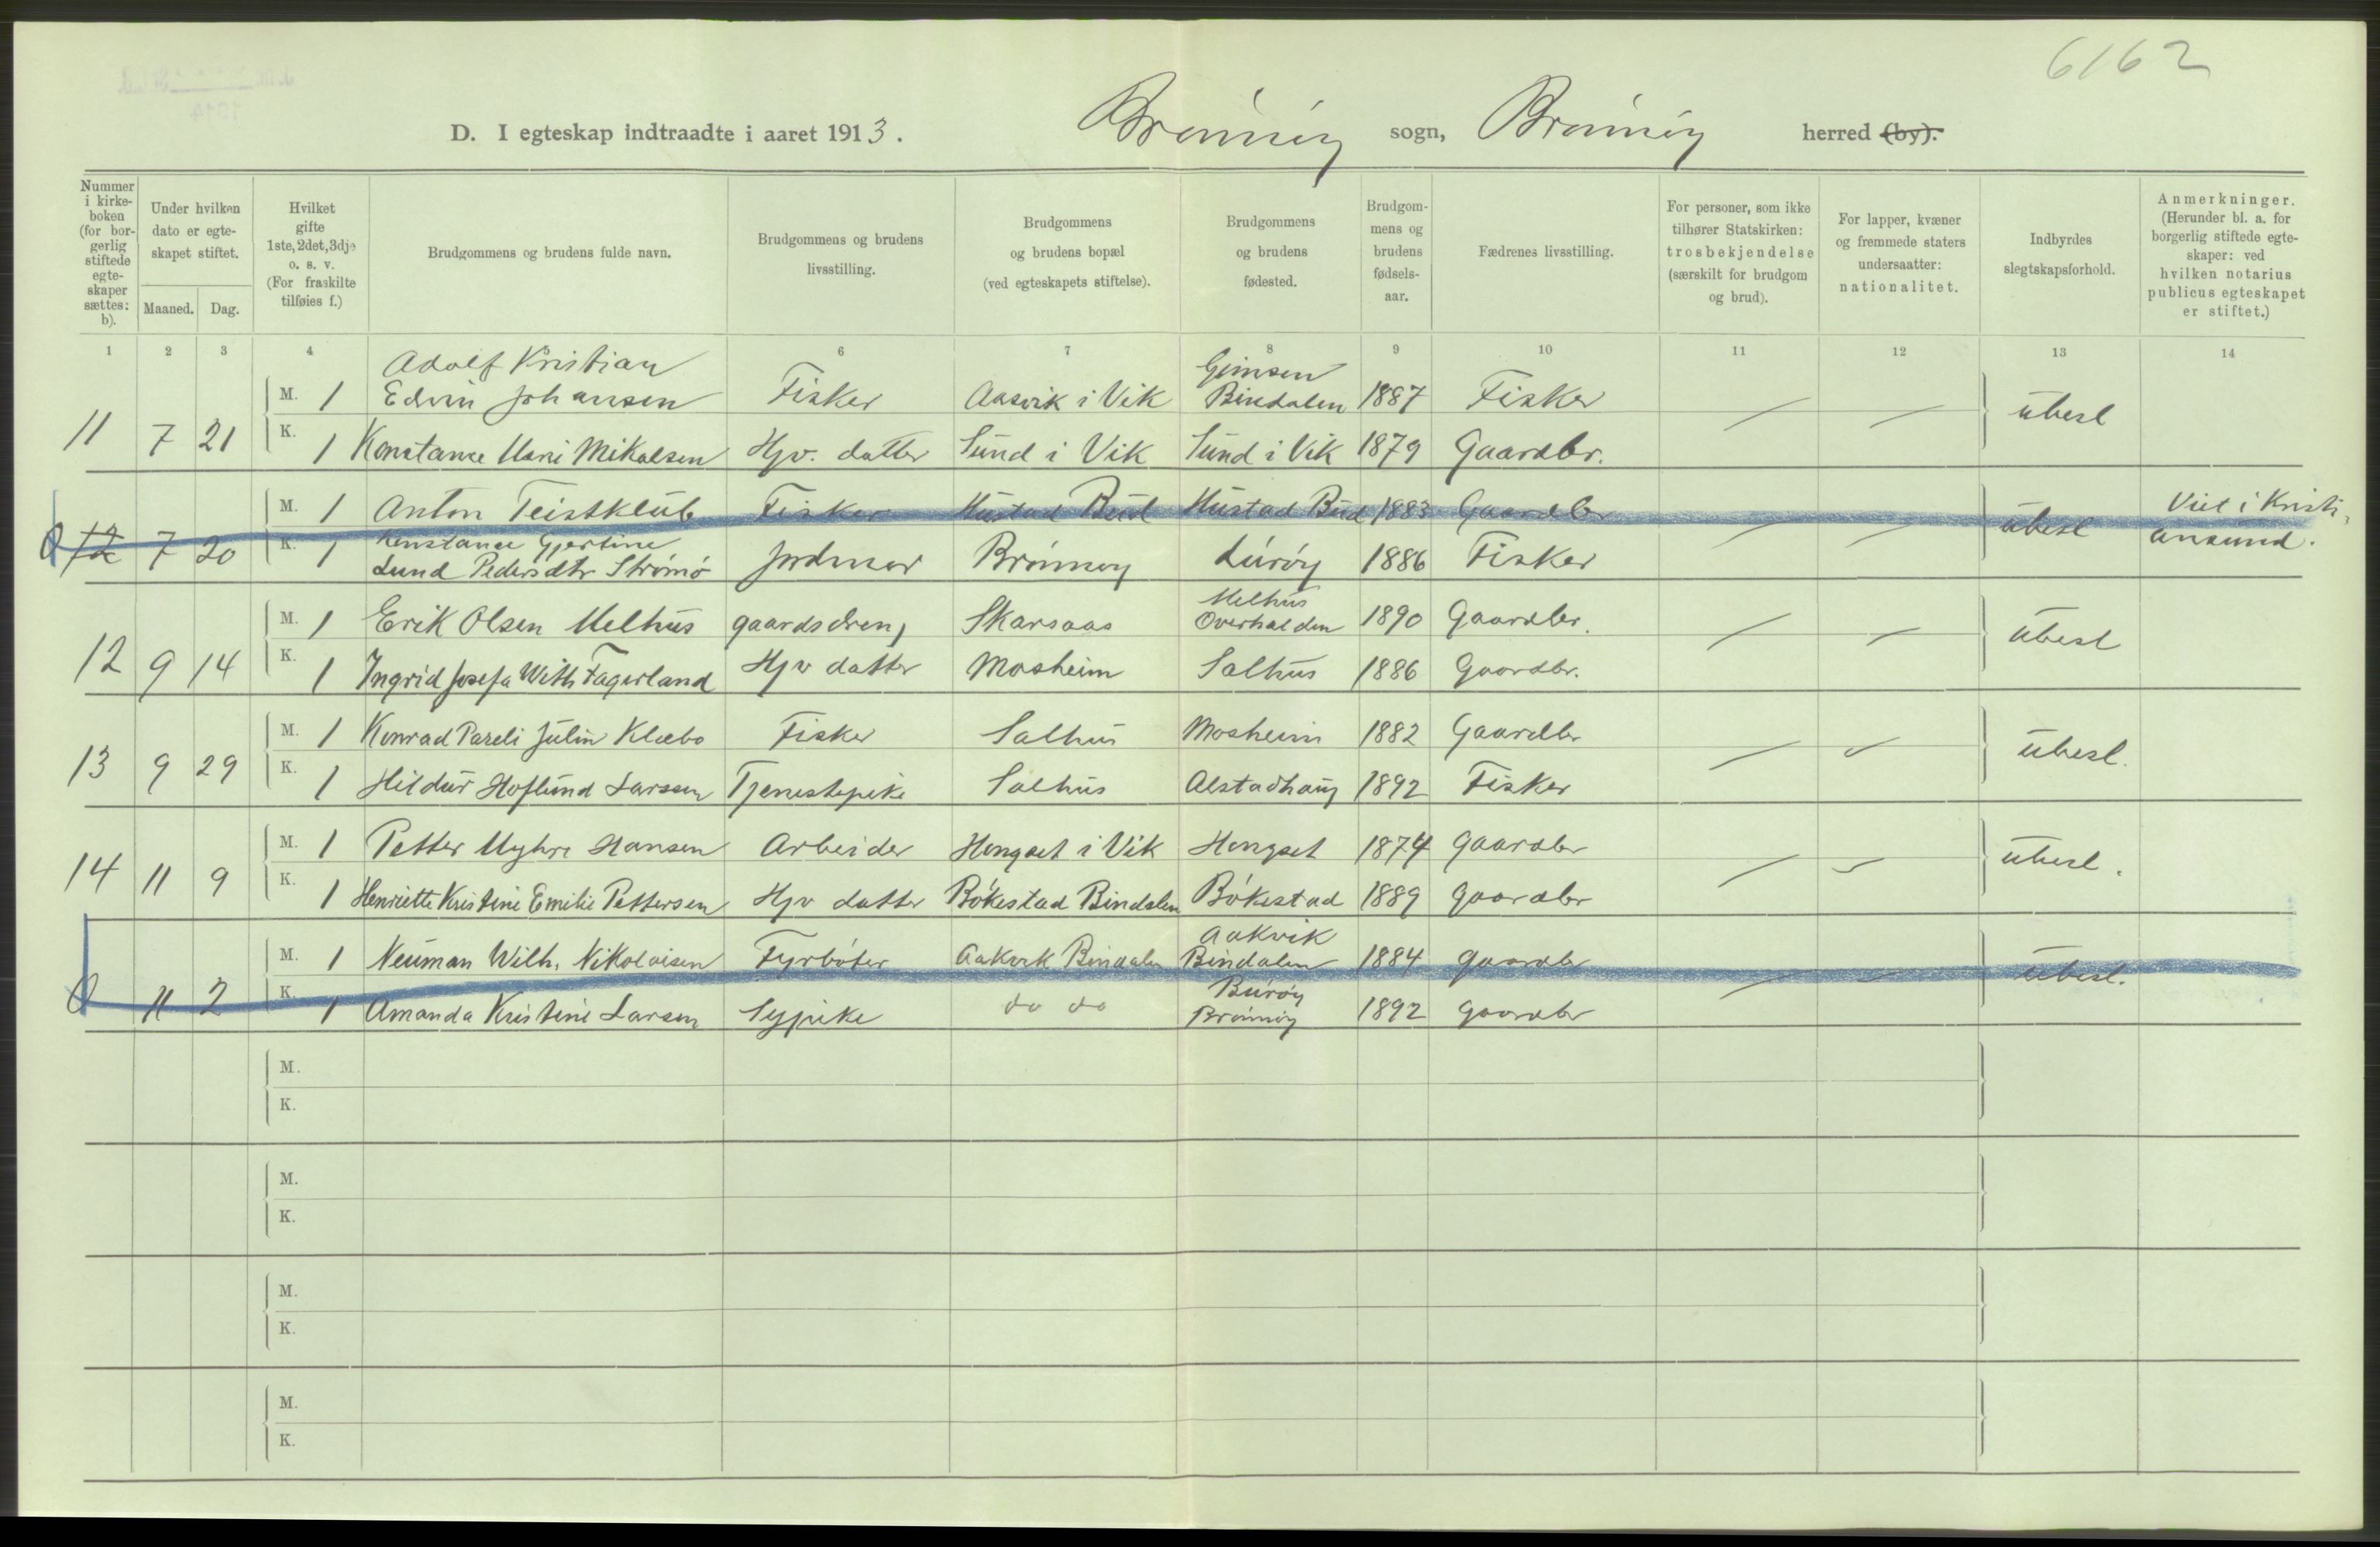 6162
D. I egteskap indtraadte i aaret 1913. Brønnøy sogn, Brønnøy herred (by).
Nummer i kirke-boken (for bor-gerlig stiftede egte-skaper sættes: b).
Under hvilken dato er egte-skapet stiftet.
Maaned. Dag.
Hvilket gifte 1ste, 2det, 3dje o. s. v. (For fraskilte tilføies f.)
Brudgommens og brudens fulde navn.
Brudgommens og brudens livsstilling.
Brudgommens og brudens bopæl (ved egteskapets stiftelse).
Brudgommens og brudens fødested.
Brudgom-mens og brudens fødsels-aar.
Fædrenes livsstilling.
For personer, som ikke tilhører Statskirken: trosbekjendelse (særskilt for brudgom og brud).
For lapper, kvæner og fremmede staters undersaatter: nationalitet.
Indbyrdes slegtskapsforhold.
Anmerkninger. (Herunder bl. a. for borgerlig stiftede egte-skaper: ved hvilken notarius publicus egteskapet er stiftet.)
1 2 3 4 5 6 7 8 9 10 11 12 13 14
Adolf Kristian Gimsen
M. 1 Edvin Johansen Fisker Aasvik i Vik Bindalen 1887 Fisker
11 7 21 ubesl
K. 1 Konstance Marie Mikalsen Hjv. datter Sund i Vik Sund i Vik 1879 Gaardbr.
M. 1 Anton Teistklub Fisker Hustad Bud Hustad Bud 1883 Gaardbr Viet i Kristi-
12 7 20 ubesl ansund.
Konstance Gjertine
K. 1 Lund Pedersdtr Strømø Jordmor Brønnøy Lurøy 1886 Fisker
Melhus
M. 1 Erik Olsen Melhus gaardsdreng Skarsaas Overhalden 1890 Gaardbr.
12 9 14 ubesl
K. 1 Ingrid Josefa With Fagerland Hjv datter Mosheim Salhus 1886 Gaardbr.
M. 1 Konrad Pareli Julin Klæbo Fisker Salhus Mosheim 1882 Gaardbr
13 9 29 ubesl.
K. 1 Hildur Hoflund Larssen Tjenestepike Salhus Alstadhaug 1892 Fisker
M. 1 Petter Myhre Hansen Arbeider Hongset i Vik Hongset 1874 Gaardbr
14 11 9 ubesl.
K. 1 Henriette Kristine Emilie Pettersen Hjv datter Bøkestad Bindalen Bøkestad 1889 Gaardbr
Aakvik
M. 1 Neuman Wilh. Nikolaisen Fyrbøter Aakvik Bindalen Bindalen 1884 gaardbr
11 2 ubesl.
Burøy
K. 1 Amanda Kristine Larsen Sypike do do Brønnøy 1892 gaardbr
M.
K.
M.
K.
M.
K.
M.
K.